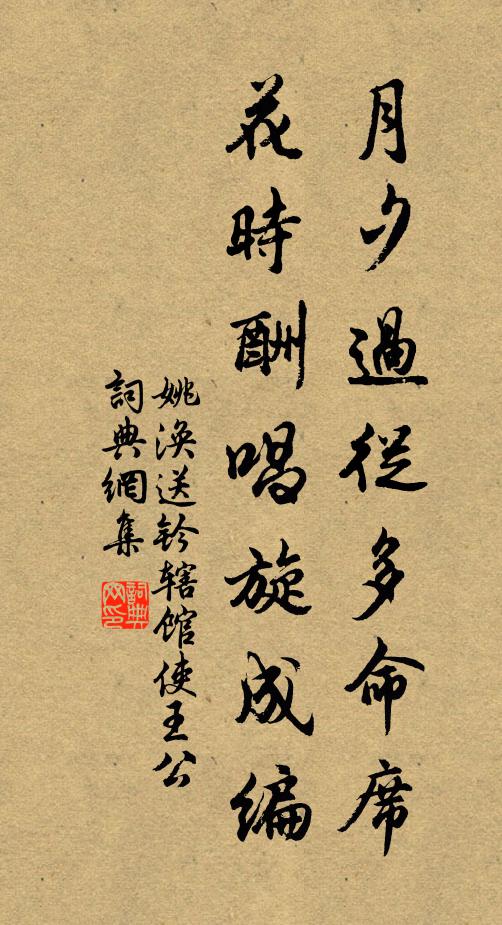 月夕過從多命席
花時酬唱旋成編
姚渙送鈐辖館使王公
詞典網集
詞典网印